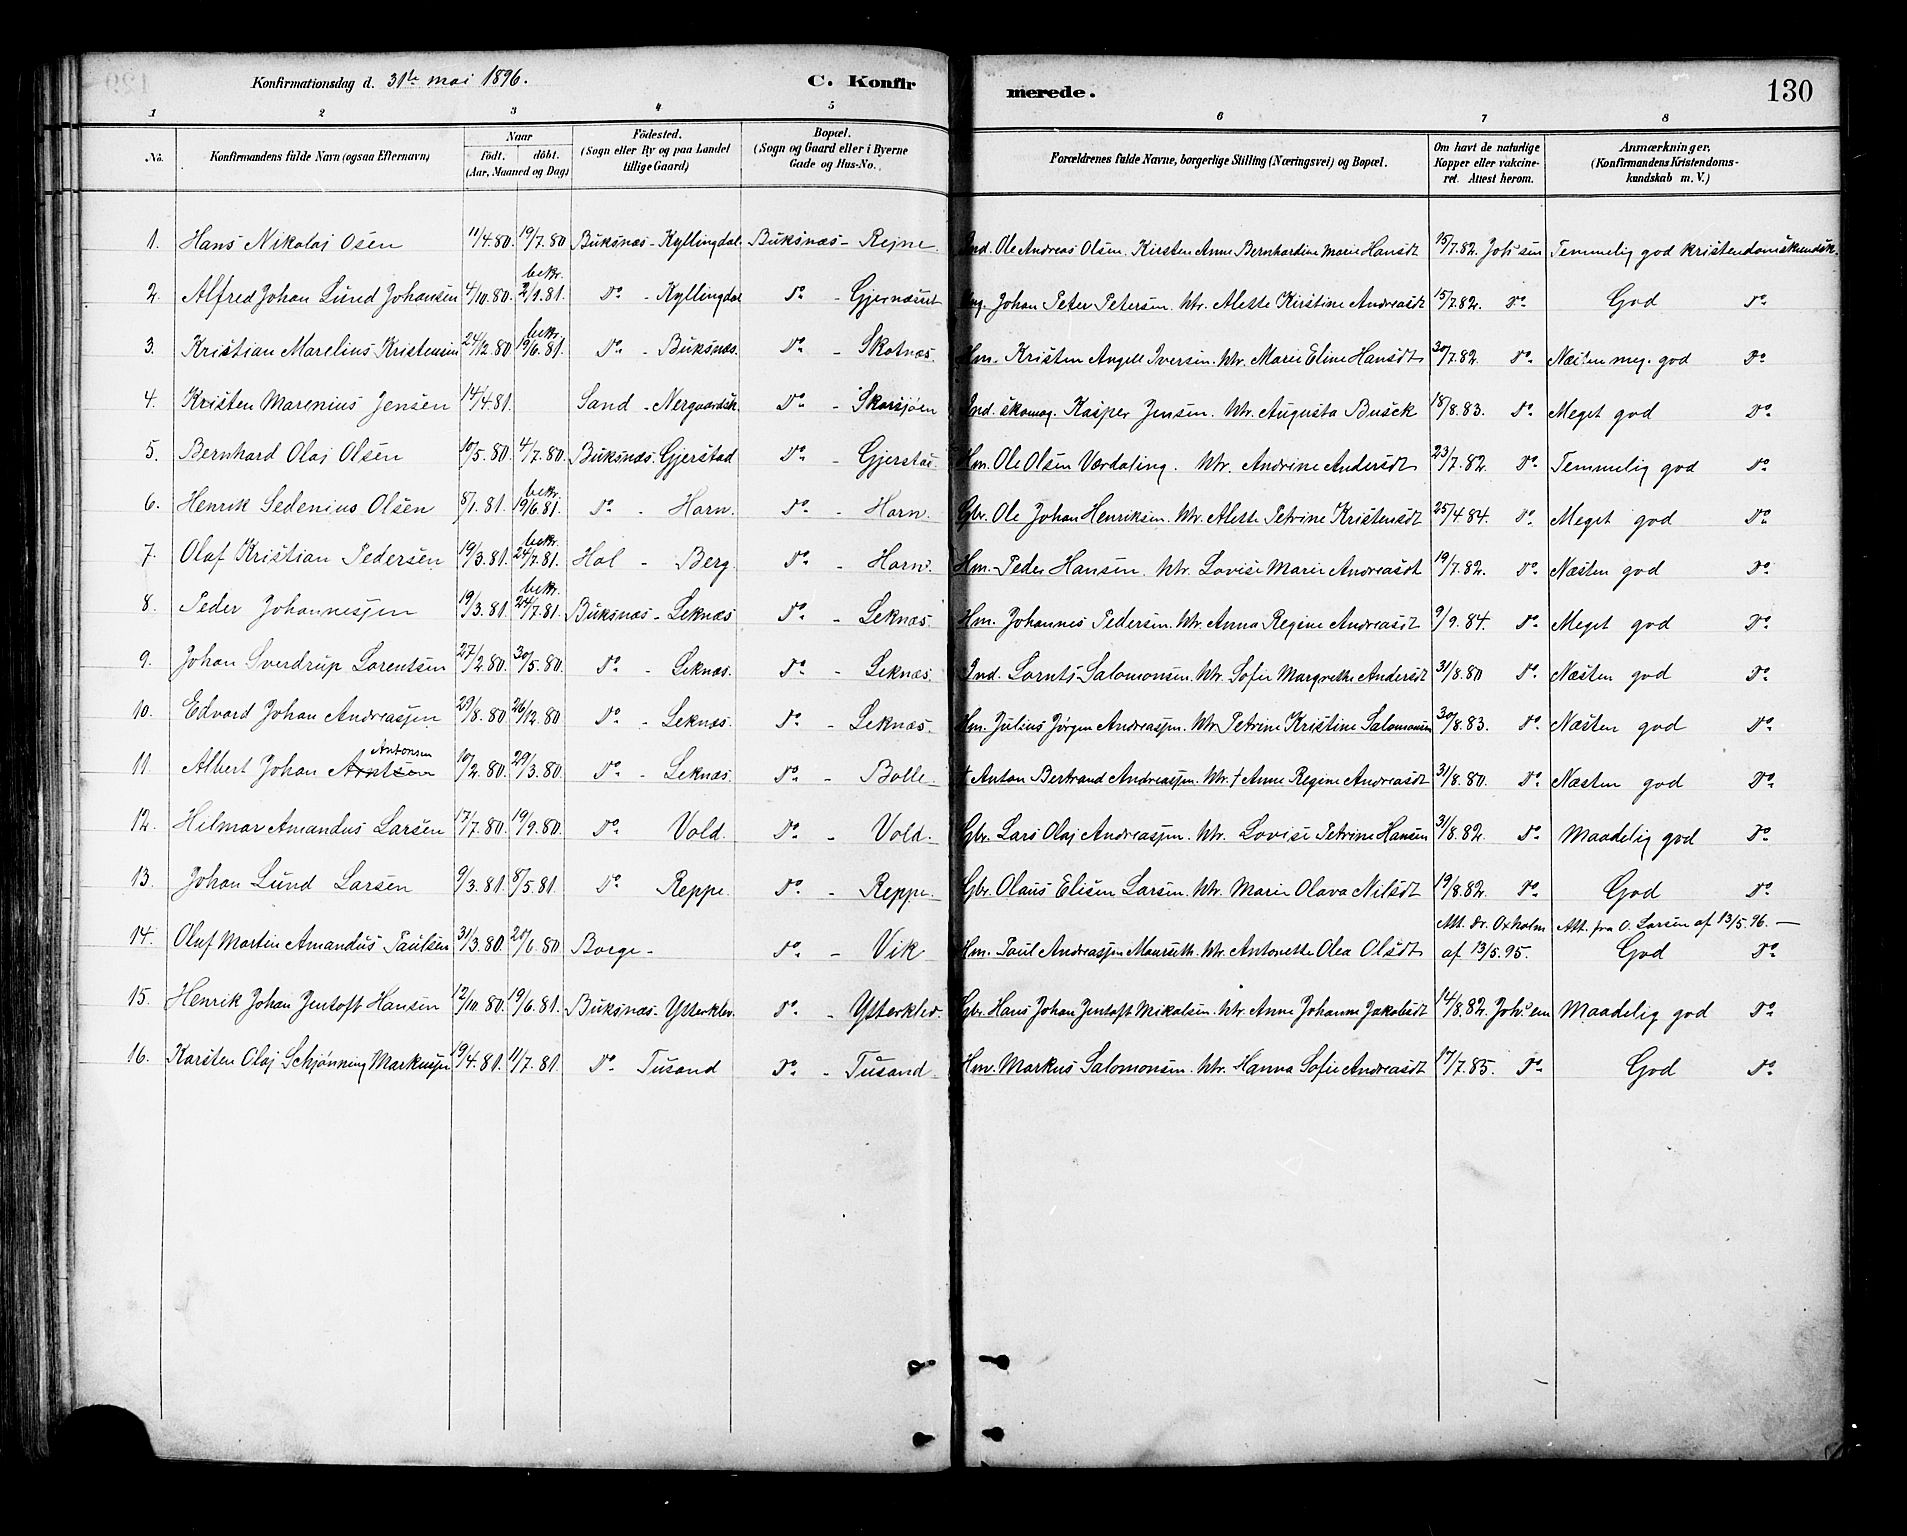 Konfirmationsdag d. 31te mai 1896. C. Konfirmerede. 130
1 2 3 4 5 6 7 8
No. Konfirmandens fulde Navn (ogsaa Efternavn) Naar Födt. döbt. (Aar, Maaned og Dag) Födested. (Sogn eller By og paa Landet tillige Gaard) Bopæl. (Sogn og Gaard eller i Byerne Gade og Hus-No. Forældrenes fulde Navne, borgerlige Stilling (Næringsvei) og Bopæl. Om havt de naturlige Kopper eller vakcineret. Attest herom. Anmærkninger. (Konfirmandens Kristendomskundskab m. V.)
1. Hans Nikolaj Osen 11/4.80. 19/7.80 Buksnæs - Kyllingdal Buksnæs - Rejne. Ind. Ole Andreas Olsen. Kirsten Anne Bernhardine Marie Hansdt 15/7.82. Temmelig god kristendomskundsk.
2. Alfred Johan Lund Johansen 4/10.80. bekr. 2/1.81. Do - Kyllingdal Do - Johan Peter Petersen. Htr. Alette Kirstine Andreasdt 15/7.82. Do God Do
3. Kristian Marelius Kristensen 24/12.80 bekr. 19/6.81. Do - Buksnæs. Do - Skotnæs. Hm. Kristen Angell Iversen. Htr. Marie Eline Hansdt 30/7.82 Do Næsten meg. god Do
4. Kristen Marenius Jensen 14/4.81. Sand - Nergaardsh. Do - Skarsjøen Ind. skomag. Kasper Jensen. Htr. Augusta Busck 18/8.83. Do Meget god Do
5. Bernhard Olaj Olsen 10/5.80. 4/7.80. Buksnæs. Gjerstad Do - Gjerstad Hm. Ole Olsen Værdaling. Htr. Andrine Andersdt 23/7.82. Do Temmelig god Do
6. Henrik Sedenius Olsen 8/1.81. bekr. 19/6.81. Do - Horn. Do - Horn. Gbr. Ole Johan Henriksen. Htr. Alette Petrine Kristensdt 25/4.84. Do Meget god Do
7. Olaf Kristian Pedersen 19/3.81. bekr. 24/7.81. Hol - Berg. Do - Horn. Hm. Peder Hansen. Htr. Lovise Marie Andreasdt 19/7.82. Do Næsten god Do
8. Peder Johannesjen 19/3.81. bekr. 24/7.81. Buksnæs - Leknæs Do - Leknæs. Hm. Johannes Pedersen. Htr. Anna Regine Andreasdt 9/9.84. Do Meget god Do
9. Johan Sverdrup Lorentsen 27/2.80. 30/5.80. Do - Leknæs. Do - Leknæs. Ind. Lornts Salomonsen. Htr. Sofie Margrethe Andersdt 31/8.80 Do Næsten god Do
10. Edvard Johan Andreasjen 29/8.80. 26/12.80 Do - Leknæs. Do - Leknæs. Hm. Julius Jørgen Andreasjen. Htr. Petrine Kristine Salomonsen 30/8.83. Do Næsten god Do
11 Albert Johan Arntsen Antonsen 10/2.80. 29/3.80. Do - Leknæs. Do - Bolle - † Anton Bertrand Andreasjen. Htr. † Anne Regine Andreasdt 31/8.80. Do Næsten god Do
12. Hilmar Amandus Larsen 17/7.80. 19/9.80. Do Vold. Do - Vold. Gbr. Lars Olaj Andreasjen. Htr. Lovise Petrine Hansen 31/8.82. Do Maadelig god Do
13. Johan Lund Larsen 9/3.81. 8/5.81. Do Reppe. Do - Reppe. Gbr. Olaus Elisen Larsen. Htr. Marie Olava Nilsdt 19/8.82. Do God Do
14. Oluf Martin Amandus Paulsen 31/3.80. 20/6.80 Borge - Do - Vik Hm. Paul Andreasjen Htr. Antonette Olea Olsdt Att. dr. Oxholm af 13/5.95. Att. fra O. Larsen af 13/5.96. — God Do
15. Henrik Johan Jentoft Hansen 12/10.80. 19/6.81. Buksnæs - Ytterklev. Do - Ytterklev. Gbr. Hans Johan Jentoft Mikalsen. Htr. Anne Johanne Jakobsdt 14/8.82. Maadelig god Do
16. Karsten Olaj Schjønning Markusjen 19/4.81. 11/7.81. Do Tusand Do - Tusand - Hm. Markus Salomonsen. Htr. Hanna Sofie Andreasdt 17/7.85. Do God Do